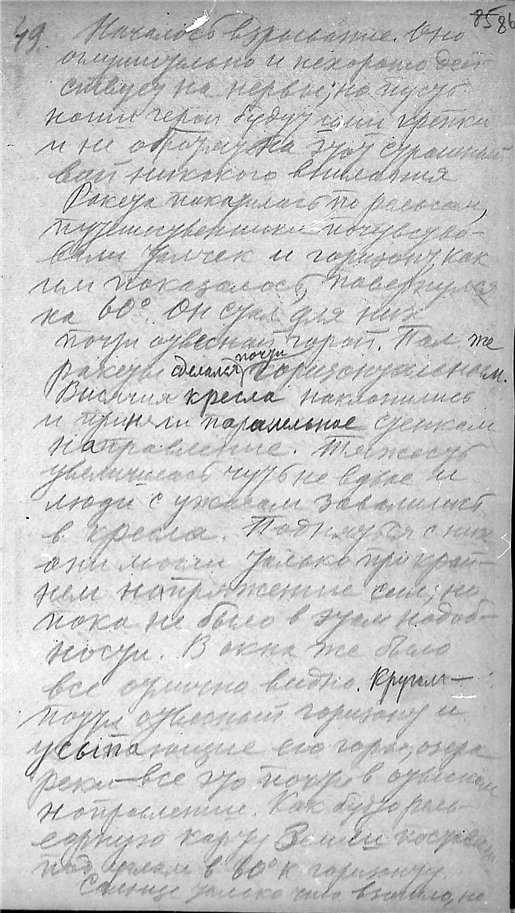 49. Началось взрывание. Оно
оглушительно и нехорошо дей
ствует на нервы; но пусть
наши герои будут крепки
и не обратят на этот страшный
вой никакого внимания
Ракета покатилась по рельсам,
путешественники почувство-
вали толчек и горизонт как
им показалось, повернулся
на 60°. Он стал для них
почти отвесной горой. Пол же
ракеты сделался почти горизонтальным.
Висячия кресла наклонились
и приняли паралельное стенкам
направление. Тяжесть
увеличилась чуть не вдвое и
люди с ужасом завалились
в кресла. Подняться с них
они могли только при край-
нем напряжение сил; но
пока не было в этом надоб-
ности. В окна же было
все отлично видно. Кругом —
почти отвесный горизонт и
усыпающие его горы, озера
реки — все это почти в отвесном
направление. Как будто рель-
ефную карту Земли поставили
под углом в 60° к горизонту.
Солнце только что взошло, но
85 86